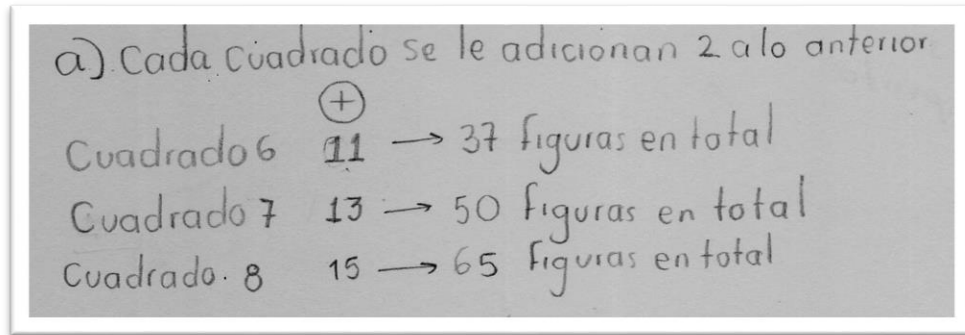 a) Cada cuadrado se le adicionan 2 a lo anterior.
+
Cuadrado 6 11 → 37 figuras en total
Cuadrado 7 13 → 50 figuras en total
Cuadrado. 8 15 → 65 figuras en total